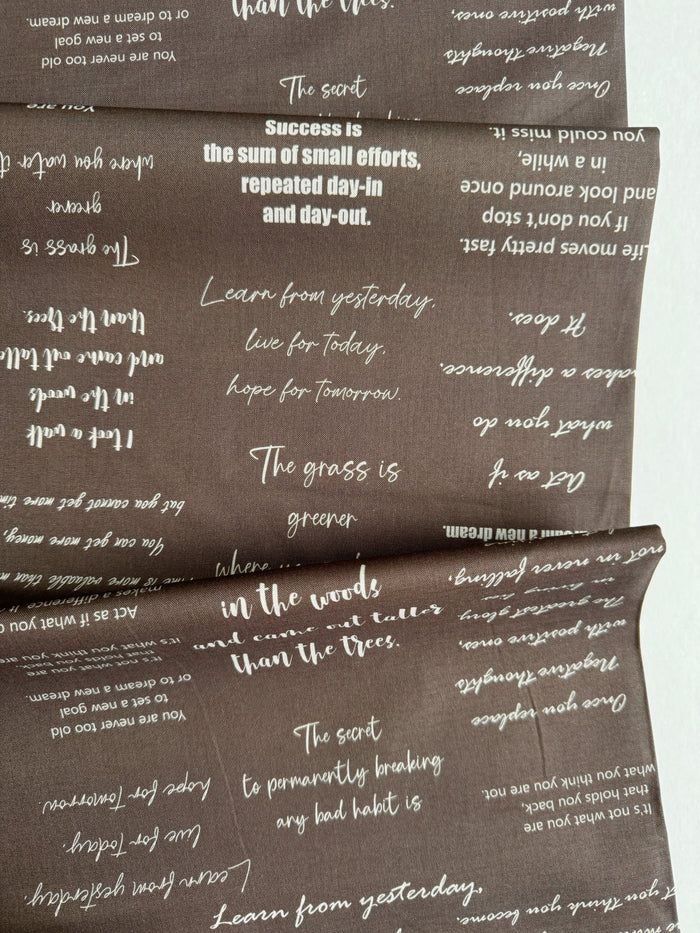 than the trees.
You are never too old
to set a new goal
or to dream a new dream.
The secret
Once you replace
Negative thoughts
with positive ones,
You are
Success is
the sum of small efforts,
repeated day-in
and day-out.
Learn from yesterday,
live for today,
hope for tomorrow.
The grass is
greener
where
The grass is
greener
where you water it
I took a walk
in the woods
and came out taller
than the trees.
Time is more valuable than
You can get more money,
but you cannot get more time
Life moves pretty fast.
If you don't stop
and look around once
in a while,
you could miss it.
Act as if
what you do
makes a difference.
It does.
dream a new dream.
in the woods
and came out taller
than the trees.
The secret
to permanently breaking
any bad habit is
Learn from yesterday,
Act as if what you do
makes a difference. It
It's not what you are
that holds you back,
what you think you
You are never too old
to set a new goal
or to dream a new dream.
Learn from yesterday,
live for today,
hope for tomorrow.
The greatest glory
in living lies
not in never falling,
Once you replace
Negative thoughts
with positive ones,
It's not what you are
that holds you back,
what you think you are not.
you think you become.